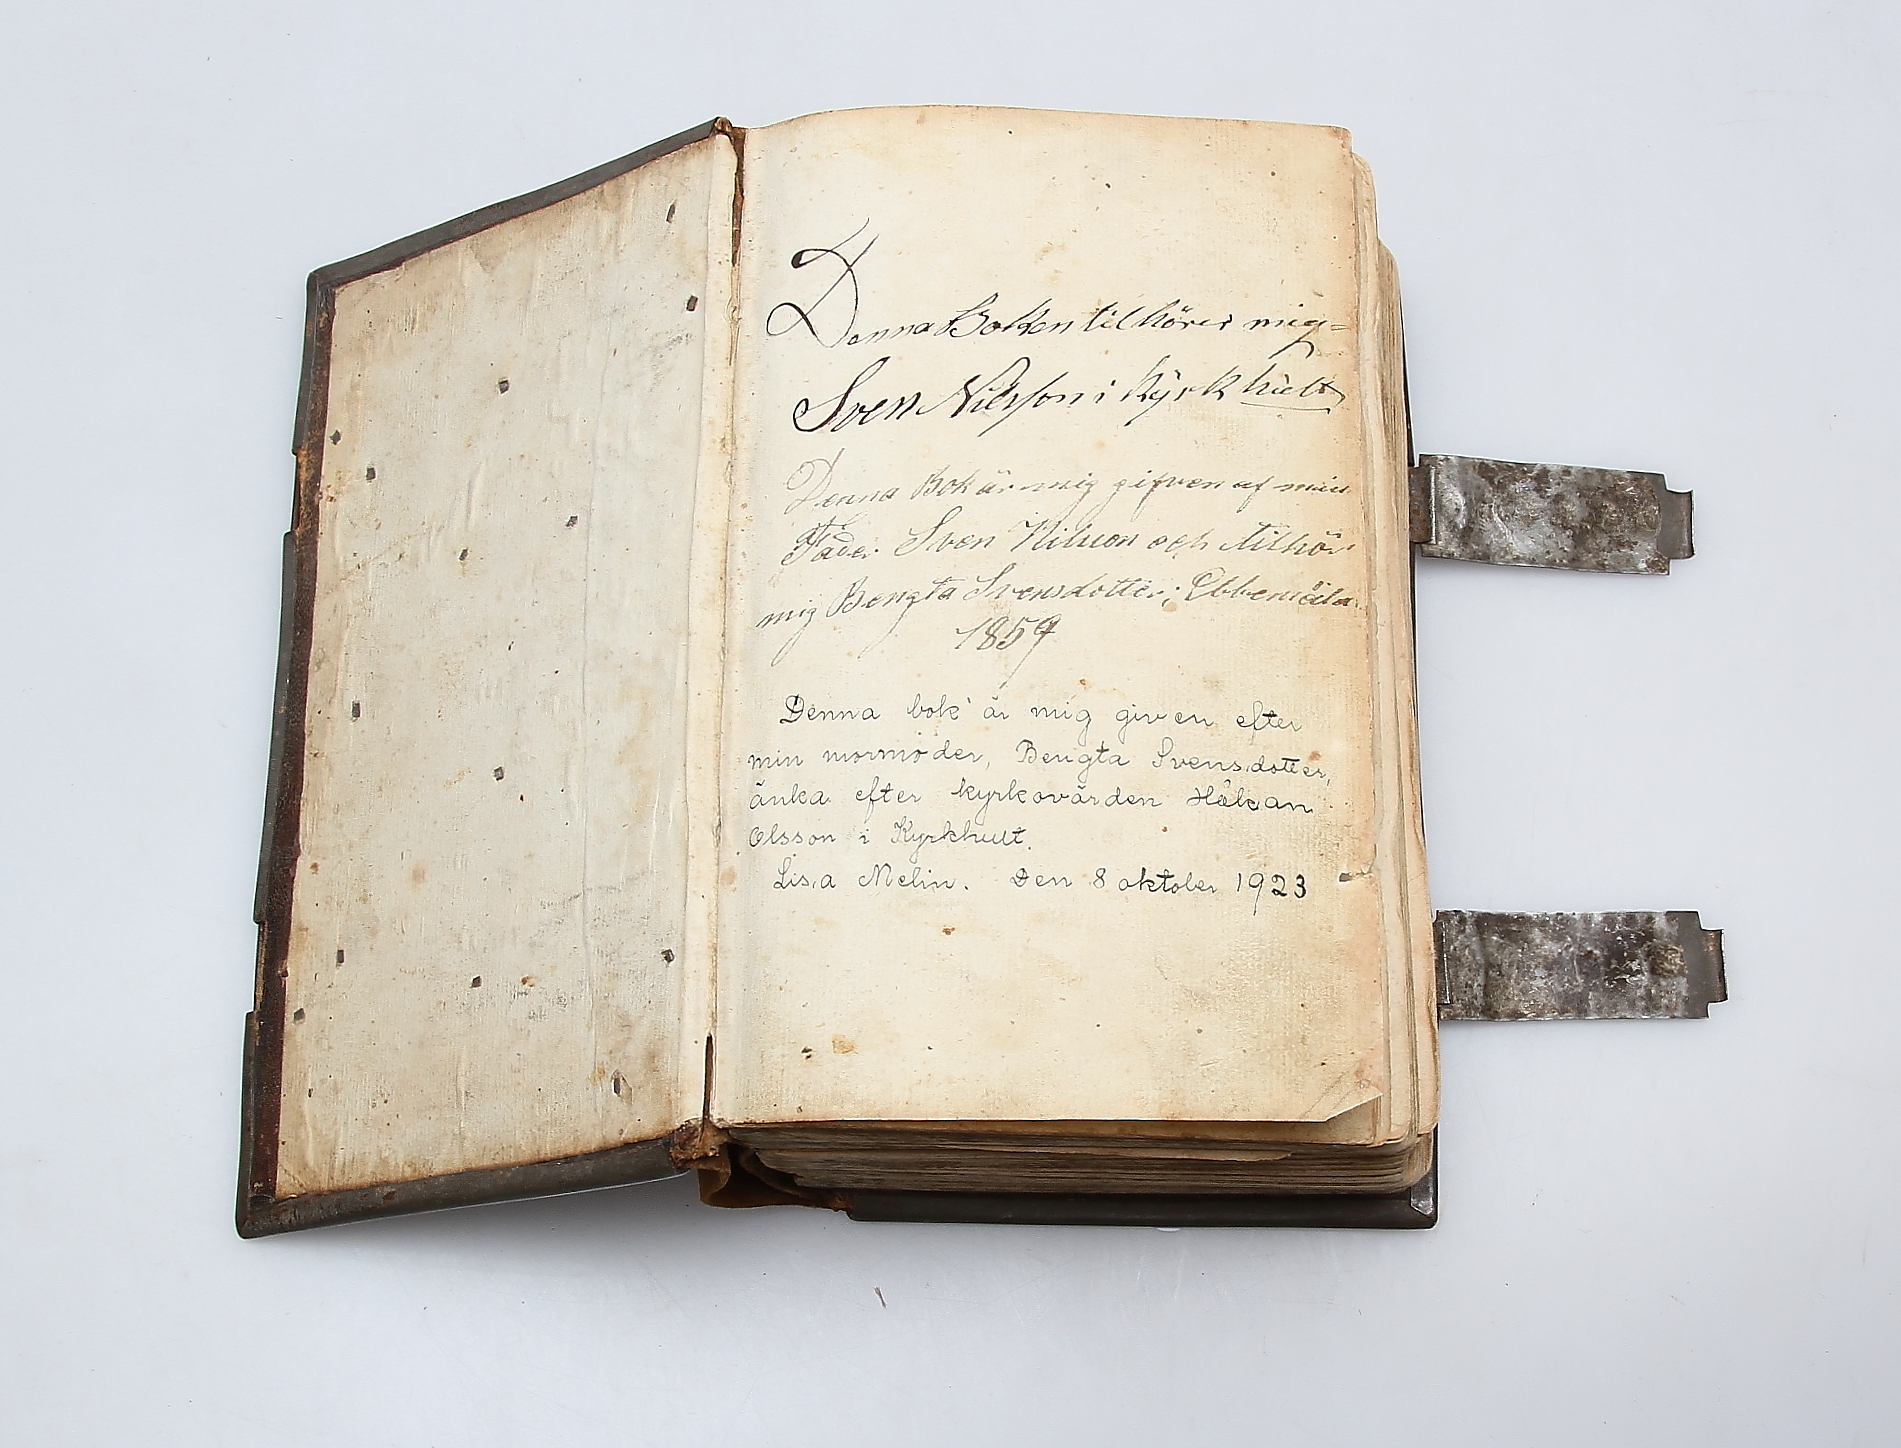 Denna Boken tilhörer mig=
Sven Nilsson i Kyrkhult
Denna Bok är mig gifven af min
Fader Sven Nilsson och tilhör
mig Bengta Svensdotter i Ebbemåla
1859
Denna bok är mig given efter
min mormoder, Bengta Svensdotter,
änka efter kyrkovärden Håkan
Olsson i Kyrkhult.
Lisa Melin. Den 8 oktober 1923